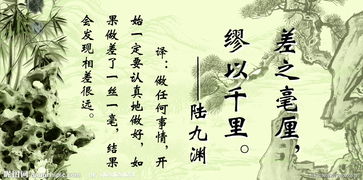 差之毫厘，
缪以千里。
——陆九渊
译：做任何事情，开
始一定要认真地做好，如
果做差了一丝一毫，结果
会发现相差很远。